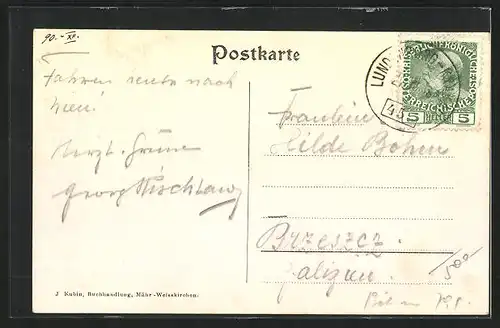 90.- XI.
Postkarte
LUND
KAISERLICHKÖNIGLICHE
ÖSTERREICHISCHE POST
5 HELLER 5
Fahren heute nach
Wien!
Herzl. Grüsse
Georg
Fräulein
Hilde Böhm
Brzeszcz
Galizien
500
J. Kubin, Buchhandlung, Mähr.-Weisskirchen.